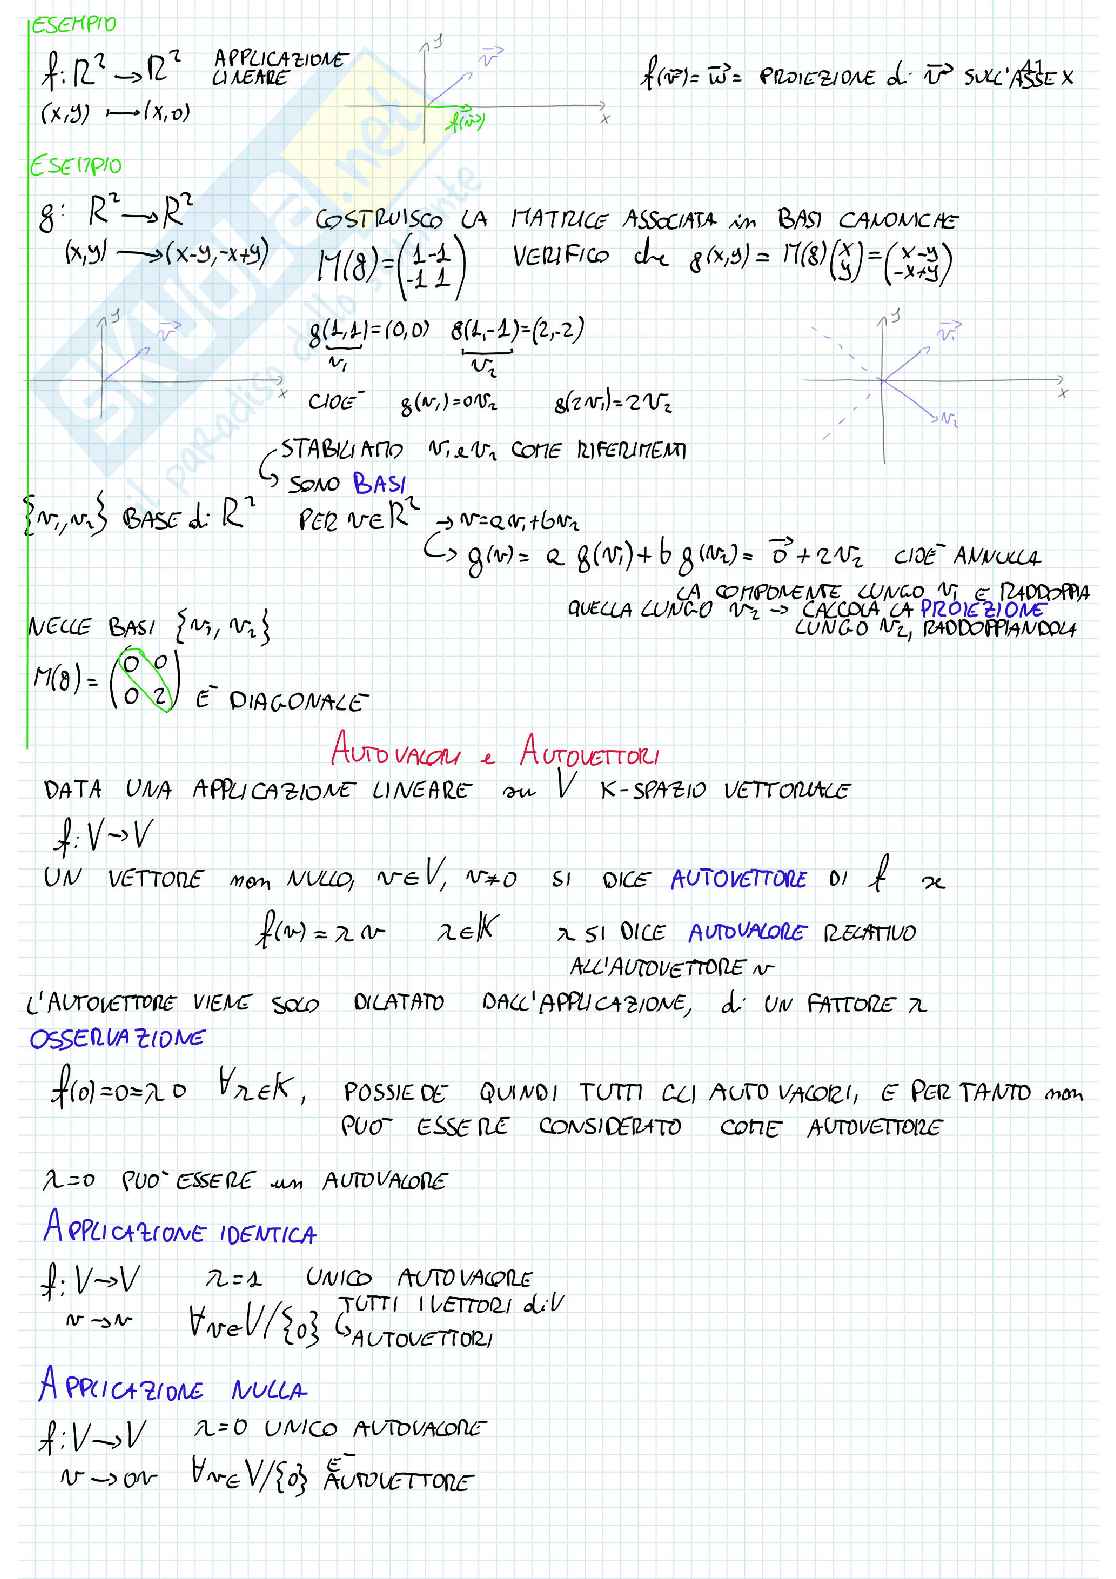 ESEMPIO
f: R² → R² APPLICAZIONE LINEARE
(x,y) ⟼ (x,0)
y
v⃗
f(v⃗)
x
f(v⃗) = w⃗ = PROIEZIONE di v⃗ SULL'ASSE X
41
ESEMPIO
g: R² → R²
(x,y) → (x-y, -x+y)
COSTRUISCO LA MATRICE ASSOCIATA in BASI CANONICHE
M(g) = (1 -1 / -1 1) VERIFICO che g(x,y) = M(g)(x / y) = (x-y / -x+y)
y
v⃗
x
g(1,1)=(0,0) g(1,-1)=(2,-2)
v₁ v₂
CIOÈ g(v₁)=0v₂ g(2v₁)=2v₂
y
v⃗₁
x
v₂
STABILIAMO v₁ e v₂ COME RIFERIMENTI
↳ SONO BASI
{v₁,v₂} BASE di R² PER v∈R² → v=av₁+bv₂
↳ g(v) = a g(v₁) + b g(v₂) = 0⃗ + 2v₂ CIOÈ ANNULLA
LA COMPONENTE LUNGO v₁ E RADDOPPIA
QUELLA LUNGO v₂ → CALCOLA LA PROIEZIONE
LUNGO v₂, RADDOPPIANDOLA
NELLE BASI {v₁, v₂}
M(g) = (0 0 / 0 2) È DIAGONALE
AUTOVALORI e AUTOVETTORI
DATA UNA APPLICAZIONE LINEARE su V K-SPAZIO VETTORIALE
f: V → V
UN VETTORE non NULLO, v∈V, v≠0 SI DICE AUTOVETTORE DI f se
f(v) = λv λ∈K λ SI DICE AUTOVALORE RELATIVO
ALL'AUTOVETTORE v
L'AUTOVETTORE VIENE SOLO DILATATO DALL'APPLICAZIONE, di UN FATTORE λ
OSSERVAZIONE
f(0)=0=λ0 ∀λ∈K, POSSIEDE QUINDI TUTTI GLI AUTOVALORI, E PER TANTO non
PUÒ ESSERE CONSIDERATO COME AUTOVETTORE
λ=0 PUÒ ESSERE un AUTOVALORE
APPLICAZIONE IDENTICA
f: V → V λ=1 UNICO AUTOVALORE
v → v ∀v∈V/{0} ↳ TUTTI I VETTORI di V
AUTOVETTORI
APPLICAZIONE NULLA
f: V → V λ=0 UNICO AUTOVALORE
v → 0v ∀v∈V/{0} È AUTOVETTORE
SKUOLA.net
il paradiso dello studente